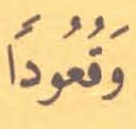 وَقُعُودًا